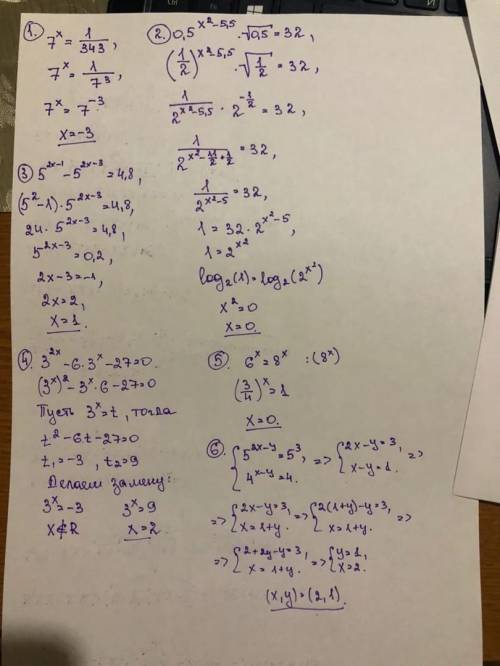 1.
7^x = 1/343,
7^x = 1/7^3,
7^x = 7^-3.
x = -3
2. 0,5^(x^2-5,5) · √0,5 = 32,
(1/2)^(x^2-5,5) · √(1/2) = 32,
1/2^(x^2-5,5) · 2^(-1/2) = 32,
1/2^(x^2-11/2+1/2) = 32,
1/2^(x^2-5) = 32,
1 = 32 · 2^(x^2-5),
1 = 2^(x^2)
log₂(1) = log₂(2^(x^2))
x^2 = 0
x = 0.
3. 5^(2x-1) - 5^(2x-3) = 4,8,
(5^2-1) · 5^(2x-3) = 4,8,
24 · 5^(2x-3) = 4,8,
5^(2x-3) = 0,2,
2x-3 = -1,
2x = 2,
x = 1.
4. 3^(2x) - 6 · 3^x - 27 = 0.
(3^x)^2 - 3^x · 6 - 27 = 0
Пусть 3^x = t, тогда
t^2 - 6t - 27 = 0
t₁ = -3, t₂ = 9
Делаем замену:
3^x = -3 3^x = 9
x ∉ R x = 2.
5. 6^x = 8^x :(8^x)
(3/4)^x = 1
x = 0.
6. { 5^(2x-y) = 5^3, 4^(x-y) = 4. => { 2x-y = 3, x-y = 1. =>
=> { 2x-y = 3, x = 1+y. => { 2(1+y)-y = 3, x = 1+y. =>
=> { 2+2y-y = 3, x = 1+y. => { y = 1, x = 2.
(x, y) = (2, 1).